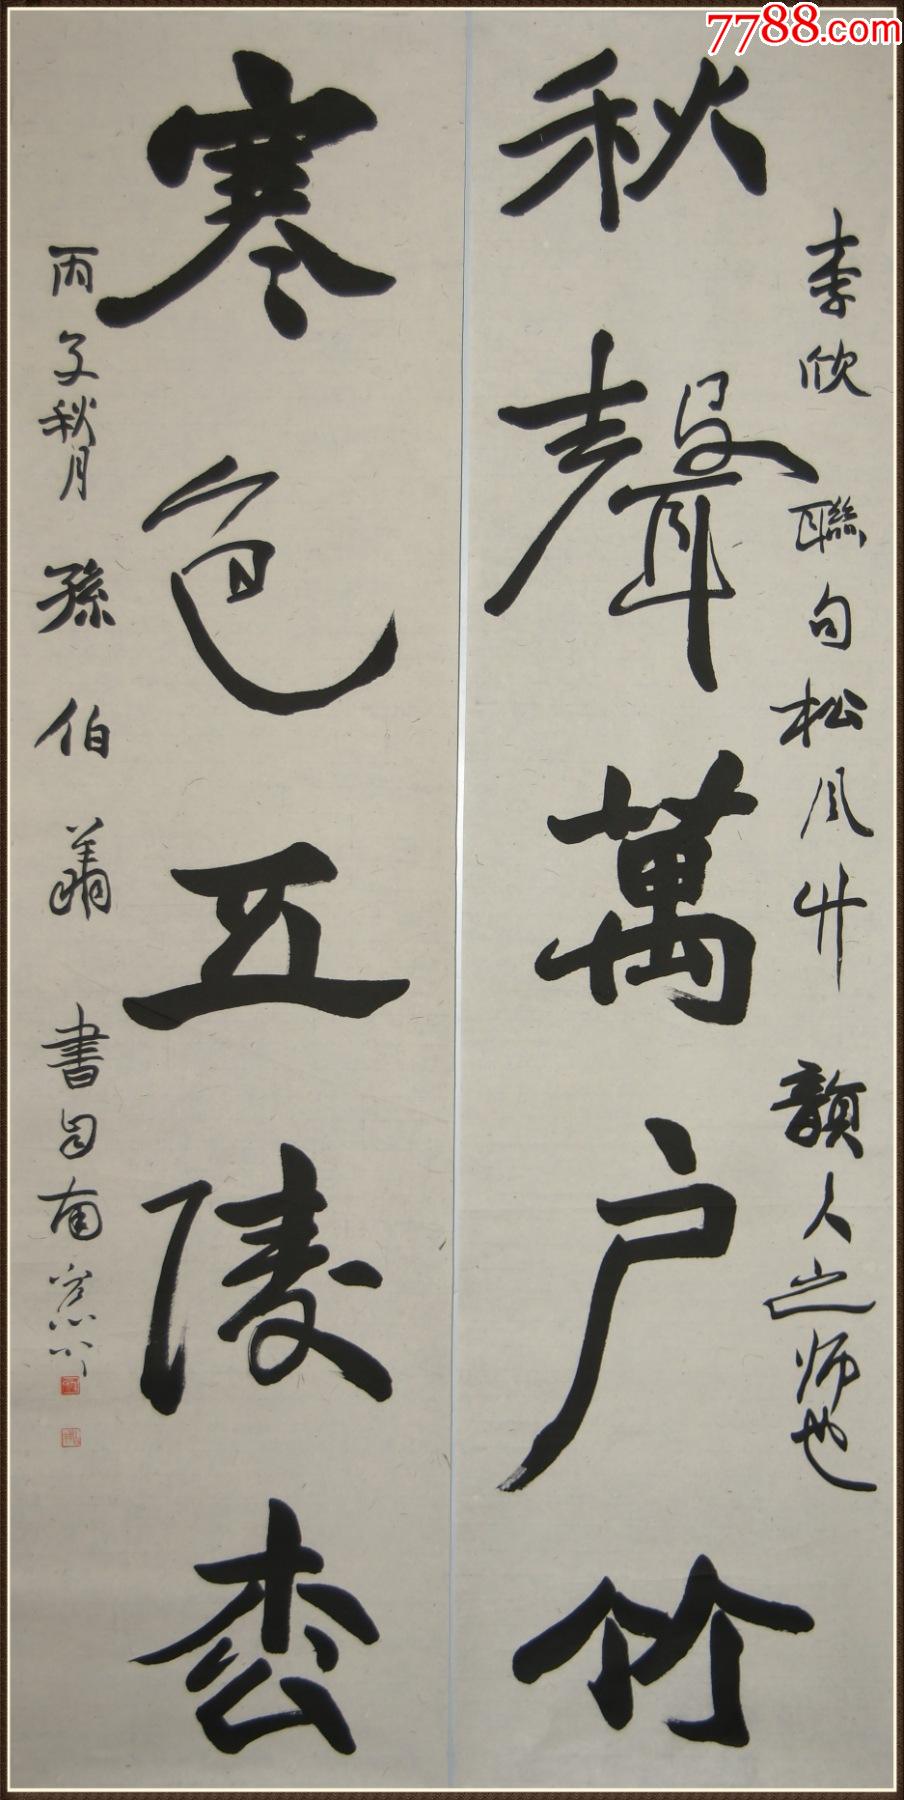 7788.com
李欣 聯句松風竹 韻人之师也
秋聲萬户竹
寒色五陵松
丙子秋月 孫伯翔 書自南窗